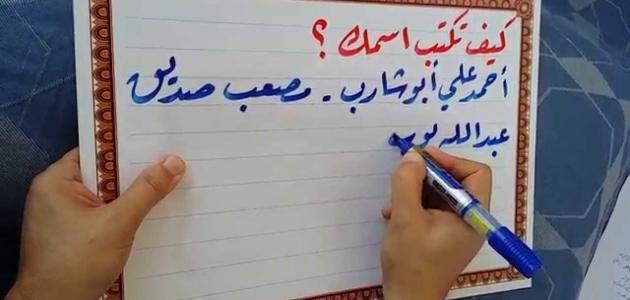 كيف تكتب اسمك ؟
أحمد علي أبو شارب . مصعب صديق
عبد الله